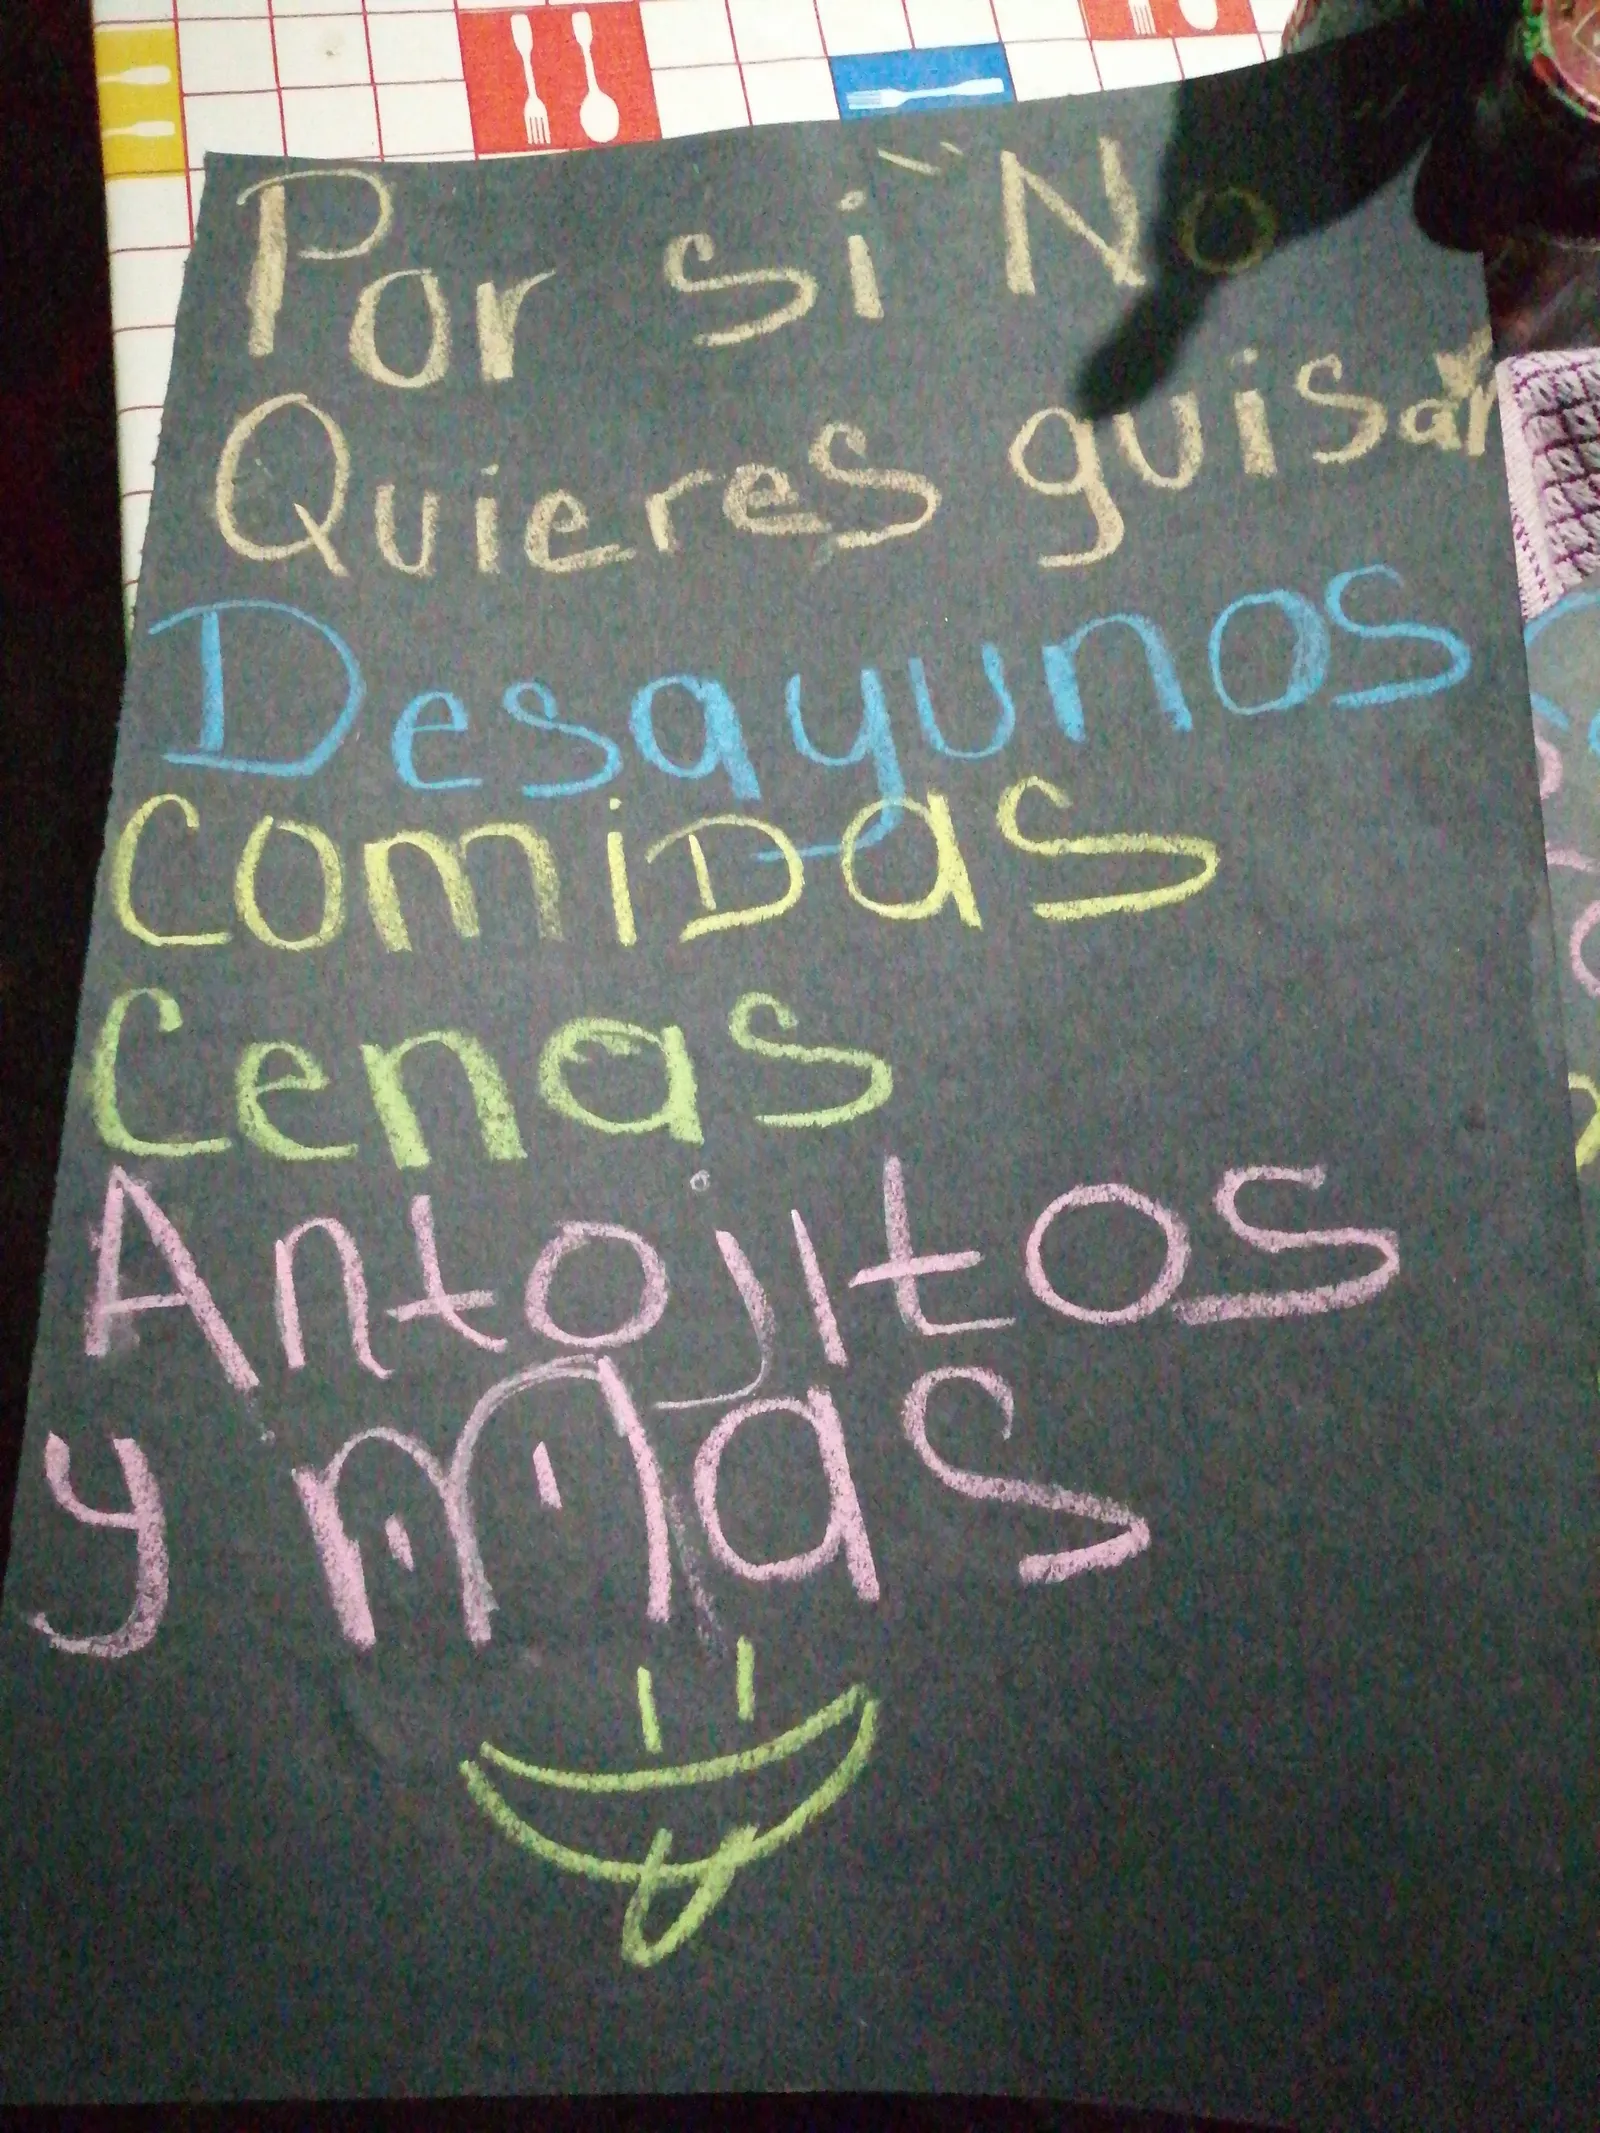 Por si "No
Quieres guisar"
Desayunos
ComiDas
Cenas
Antojitos
y mas